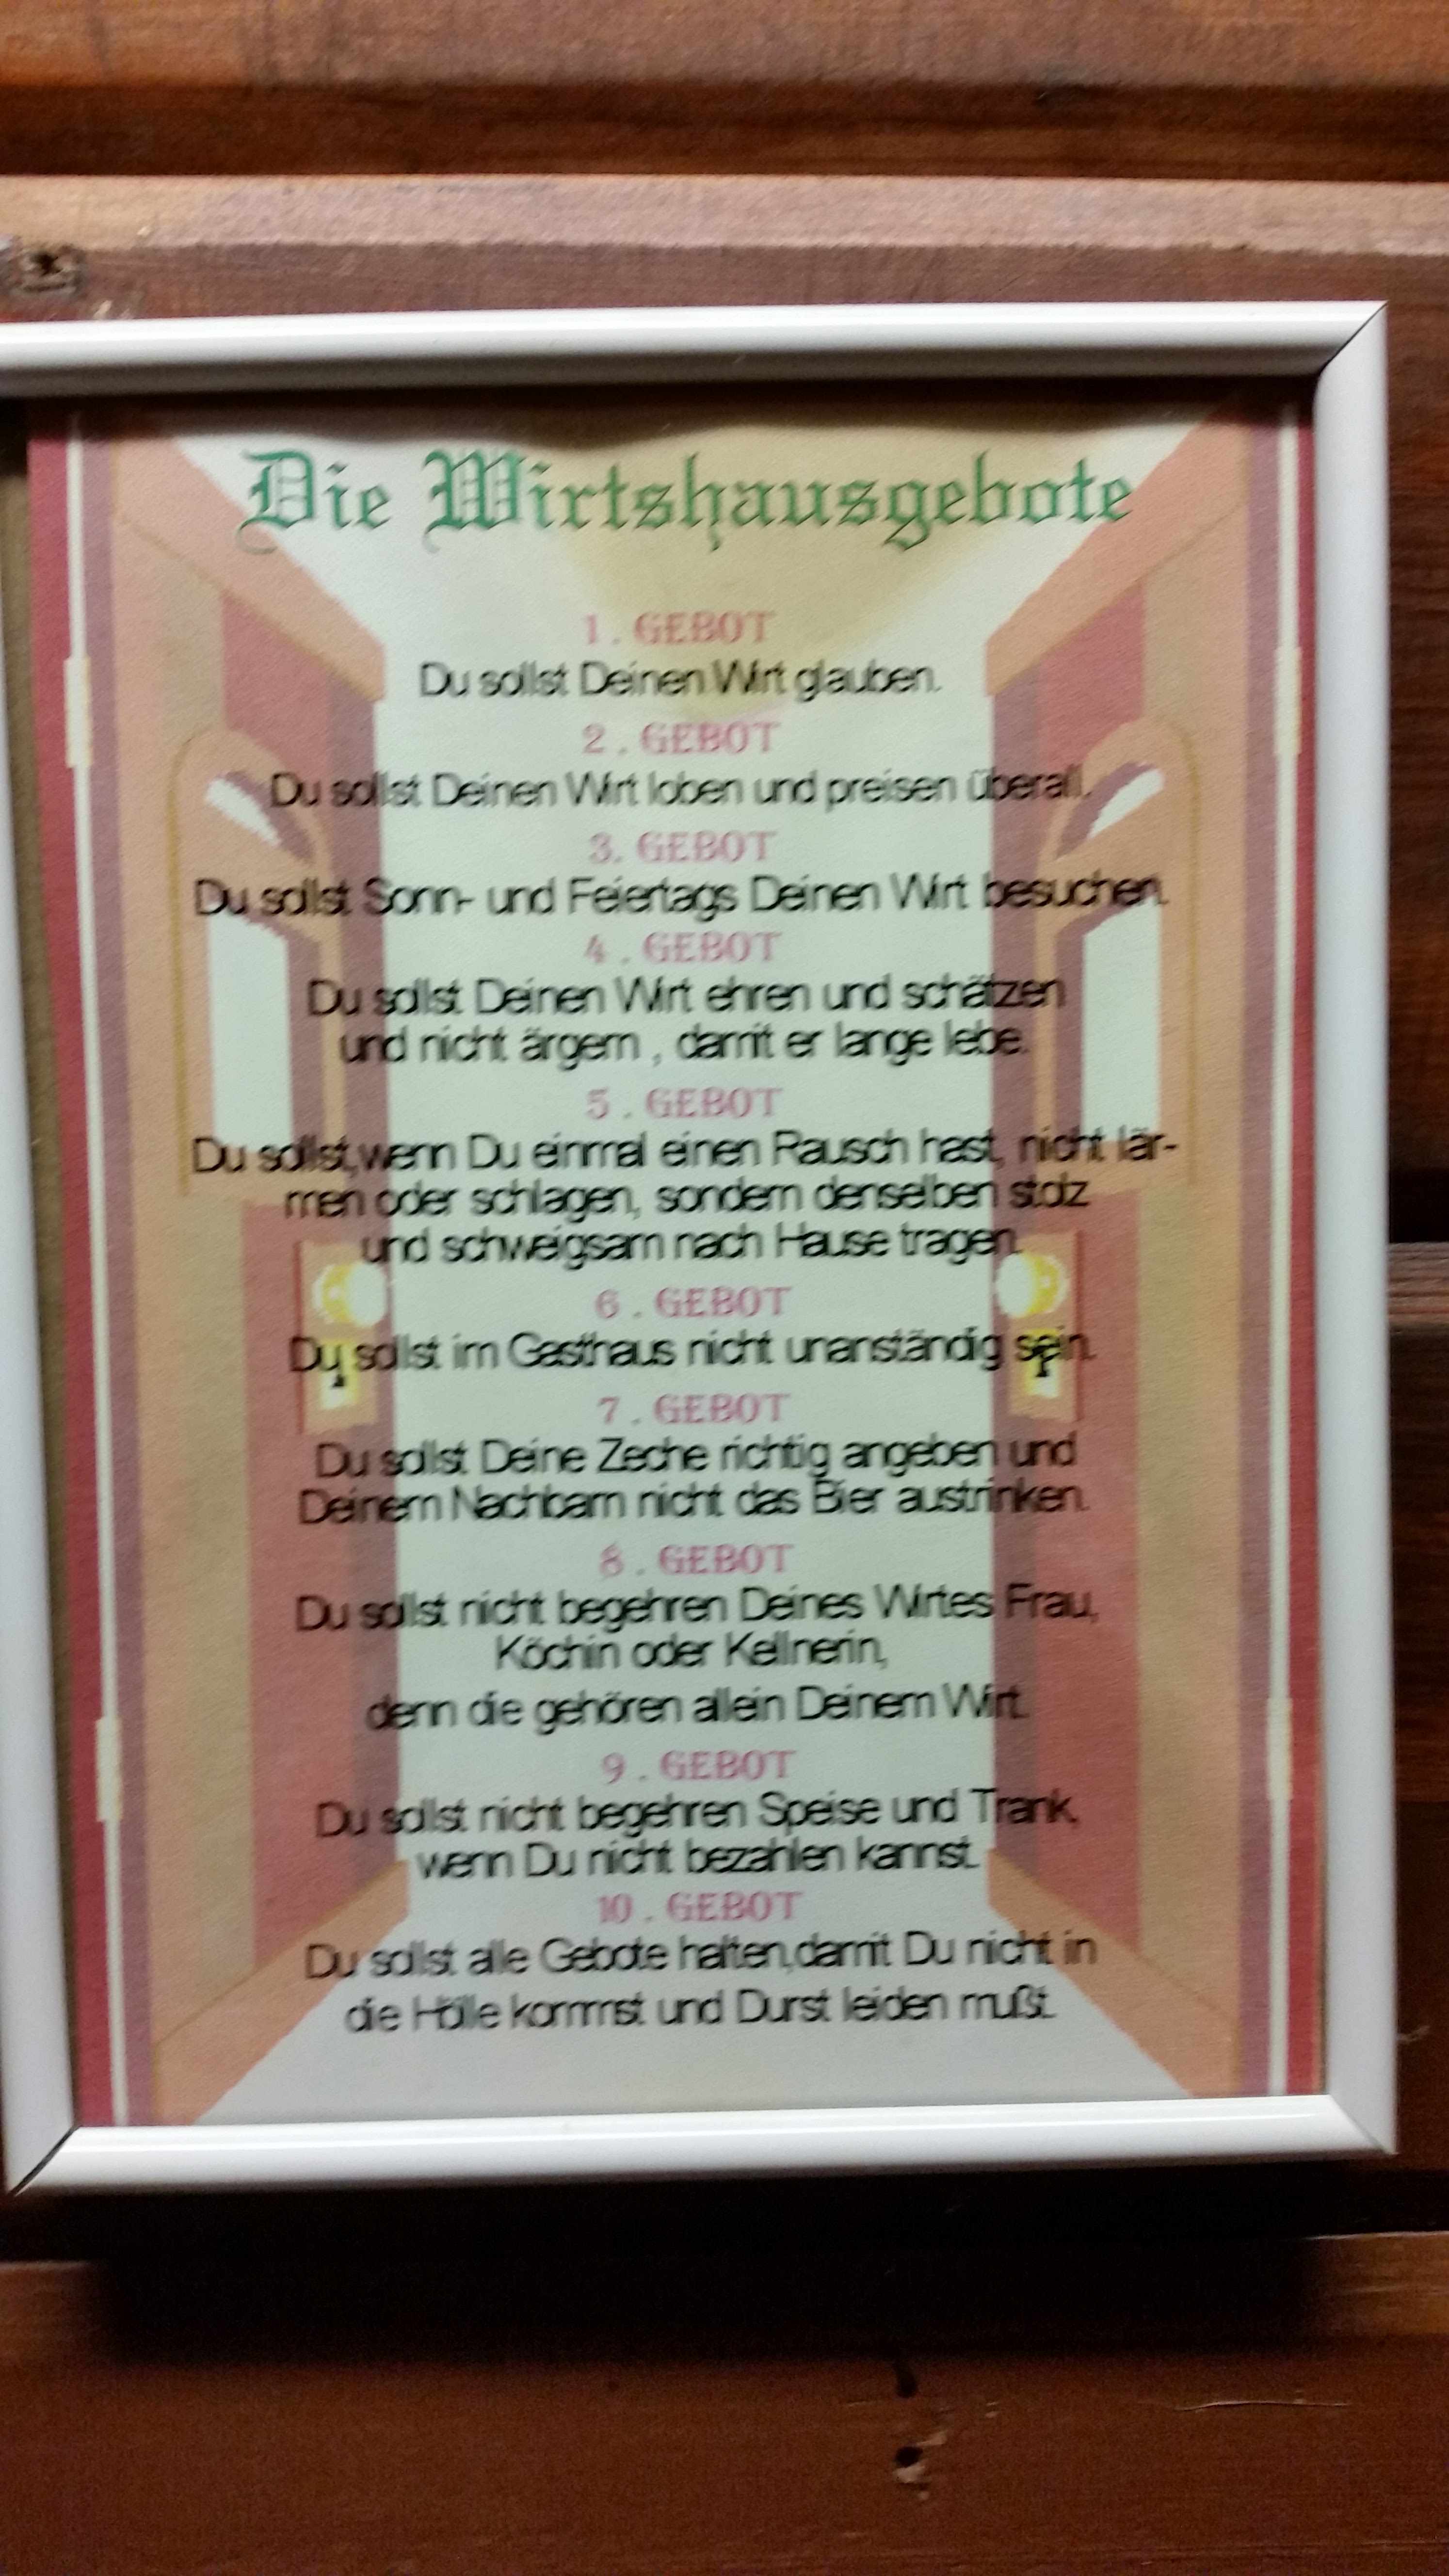 Die Wirtshausgebote
1 . GEBOT
Du sollst Deinen Wirt glauben.
2 . GEBOT
Du sollst Deinen Wirt loben und preisen überall.
3. GEBOT
Du sollst Sonn- und Feiertags Deinen Wirt besuchen.
4 . GEBOT
Du sollst Deinen Wirt ehren und schätzen
und nicht ärgern , damit er lange lebe.
5 . GEBOT
Du sollst,wenn Du einmal einen Rausch hast, nicht lär-
men oder schlagen, sondern denselben stolz
und schweigsam nach Hause tragen.
6 . GEBOT
Du sollst im Gasthaus nicht unanständig sein.
7 . GEBOT
Du sollst Deine Zeche richtig angeben und
Deinem Nachbarn nicht das Bier austrinken.
8 . GEBOT
Du sollst nicht begehren Deines Wirtes Frau,
Köchin oder Kellnerin,
denn die gehören allein Deinem Wirt.
9 . GEBOT
Du sollst nicht begehren Speise und Trank,
wenn Du nicht bezahlen kannst.
10 . GEBOT
Du sollst alle Gebote halten,damit Du nicht in
die Hölle kommst und Durst leiden mußt.